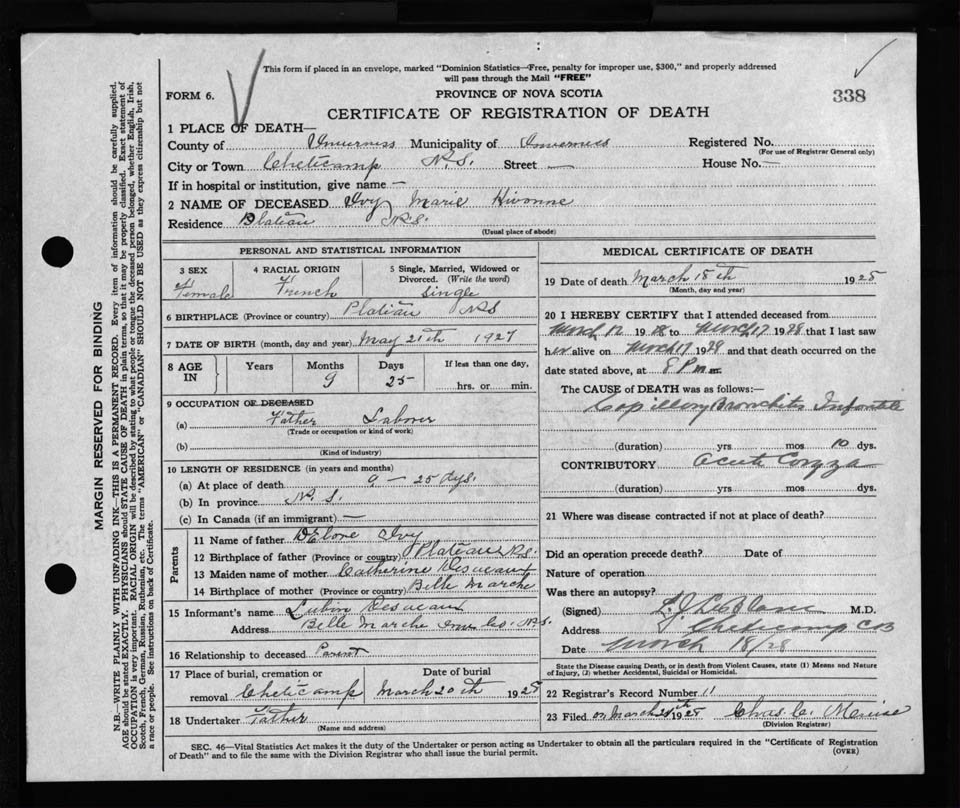 This form if placed in an envelope, marked "Dominion Statistics—Free, penalty for improper use, $300," and properly addressed
will pass through the Mail "FREE"
FORM 6.
PROVINCE OF NOVA SCOTIA
338
CERTIFICATE OF REGISTRATION OF DEATH
1 PLACE OF DEATH—
County of Inverness Municipality of Inverness Registered No.
(For use of Registrar General only)
City or Town Cheticamp N.S. Street — House No. —
If in hospital or institution, give name —
2 NAME OF DECEASED Ivy Marie Hivonne
Residence Plateau N.S.
(Usual place of abode)
MARGIN RESERVED FOR BINDING
N.B.—WRITE PLAINLY WITH UNFADING INK—THIS IS A PERMANENT RECORD. Every item of information should be carefully supplied.
AGE should be stated EXACTLY. PHYSICIANS should STATE CAUSE OF DEATH in plain terms, so that it may be properly classified. Exact statement of
OCCUPATION is very important. RACIAL ORIGIN will be described by stating to what people or tongue the deceased person belonged, whether English, Irish,
Scotch, French, German, Russian, Ruthenian, etc. The terms "AMERICAN" or "CANADIAN" SHOULD NOT BE USED as they express citizenship but not
a race or people. See instructions on back of Certificate.
PERSONAL AND STATISTICAL INFORMATION
3 SEX
Female
4 RACIAL ORIGIN
French
5 Single, Married, Widowed or
Divorced. (Write the word)
Single
6 BIRTHPLACE (Province or country) Plateau NS
7 DATE OF BIRTH (month, day and year) May 21th 1927
8 AGE IN
Years
Months
9
Days
25
If less than one day,
hrs. or min.
9 OCCUPATION OF DECEASED
(a) Father Laborer
(Trade or occupation or kind of work)
(b)
(Kind of industry)
10 LENGTH OF RESIDENCE (in years and months)
(a) At place of death 9 — 25 dys.
(b) In province N.S.
(c) In Canada (if an immigrant) —
Parents
11 Name of father Delore Ivy
12 Birthplace of father (Province or country) Plateau N.S.
13 Maiden name of mother Catherine Desveaux
14 Birthplace of mother (Province or country) Belle Marche
15 Informant's name Lubin Desveaux
Address Belle Marche Inv Co. N.S.
16 Relationship to deceased Parent
17 Place of burial, cremation or
removal Cheticamp
Date of burial
March 20th 1928
18 Undertaker Father
(Name and address)
MEDICAL CERTIFICATE OF DEATH
19 Date of death March 18th 1928
(Month, day and year)
20 I HEREBY CERTIFY that I attended deceased from
March 12 1928 to March 17 1928 that I last saw
her alive on March 17 1928 and that death occurred on the
date stated above, at 8 P m.
The CAUSE of DEATH was as follows:—
Capillary Bronchitis Infantile
(duration) yrs mos 10 dys.
CONTRIBUTORY Acute Coryza
(duration) yrs. mos. dys.
21 Where was disease contracted if not at place of death?
Did an operation precede death? Date of
Nature of operation
Was there an autopsy?
(Signed) L.J. LeBlanc M.D.
Address Cheticamp CB
Date March 18/28
State the Disease causing Death, or in death from Violent Causes, state (1) Means and Nature
of Injury, (2) whether Accidental, Suicidal or Homicidal.
22 Registrar's Record Number 11
23 Filed on March 1928 Chas. C.
(Division Registrar)
SEC. 46—Vital Statistics Act makes it the duty of the Undertaker or person acting as Undertaker to obtain all the particulars required in the "Certificate of Registration
of Death" and to file the same with the Division Registrar who shall issue the burial permit.
(OVER)